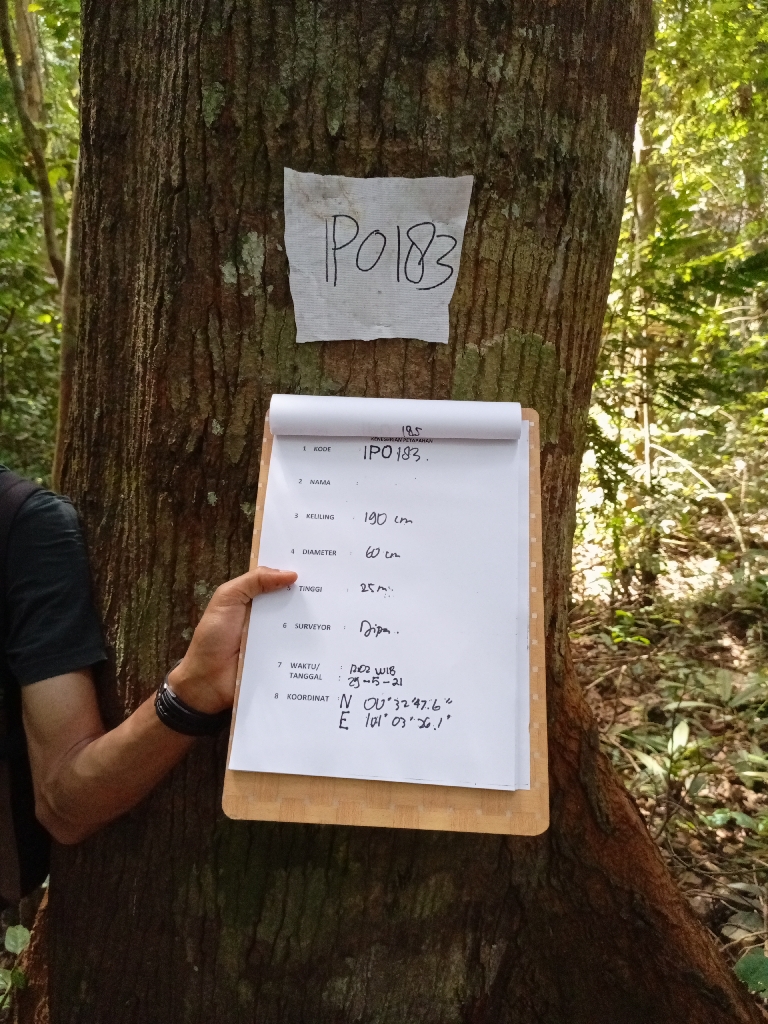 IPO183
185
1 KODE IPO 183.
2 NAMA :
3 KELILING : 190 cm
4 DIAMETER : 60 cm
5 TINGGI : 25 m
6 SURVEYOR :
7 WAKTU/ : WIB
TANGGAL : 29-5-21
8 KOORDINAT : N 00° 32' 47.6"
E 101° 03' 26.1"